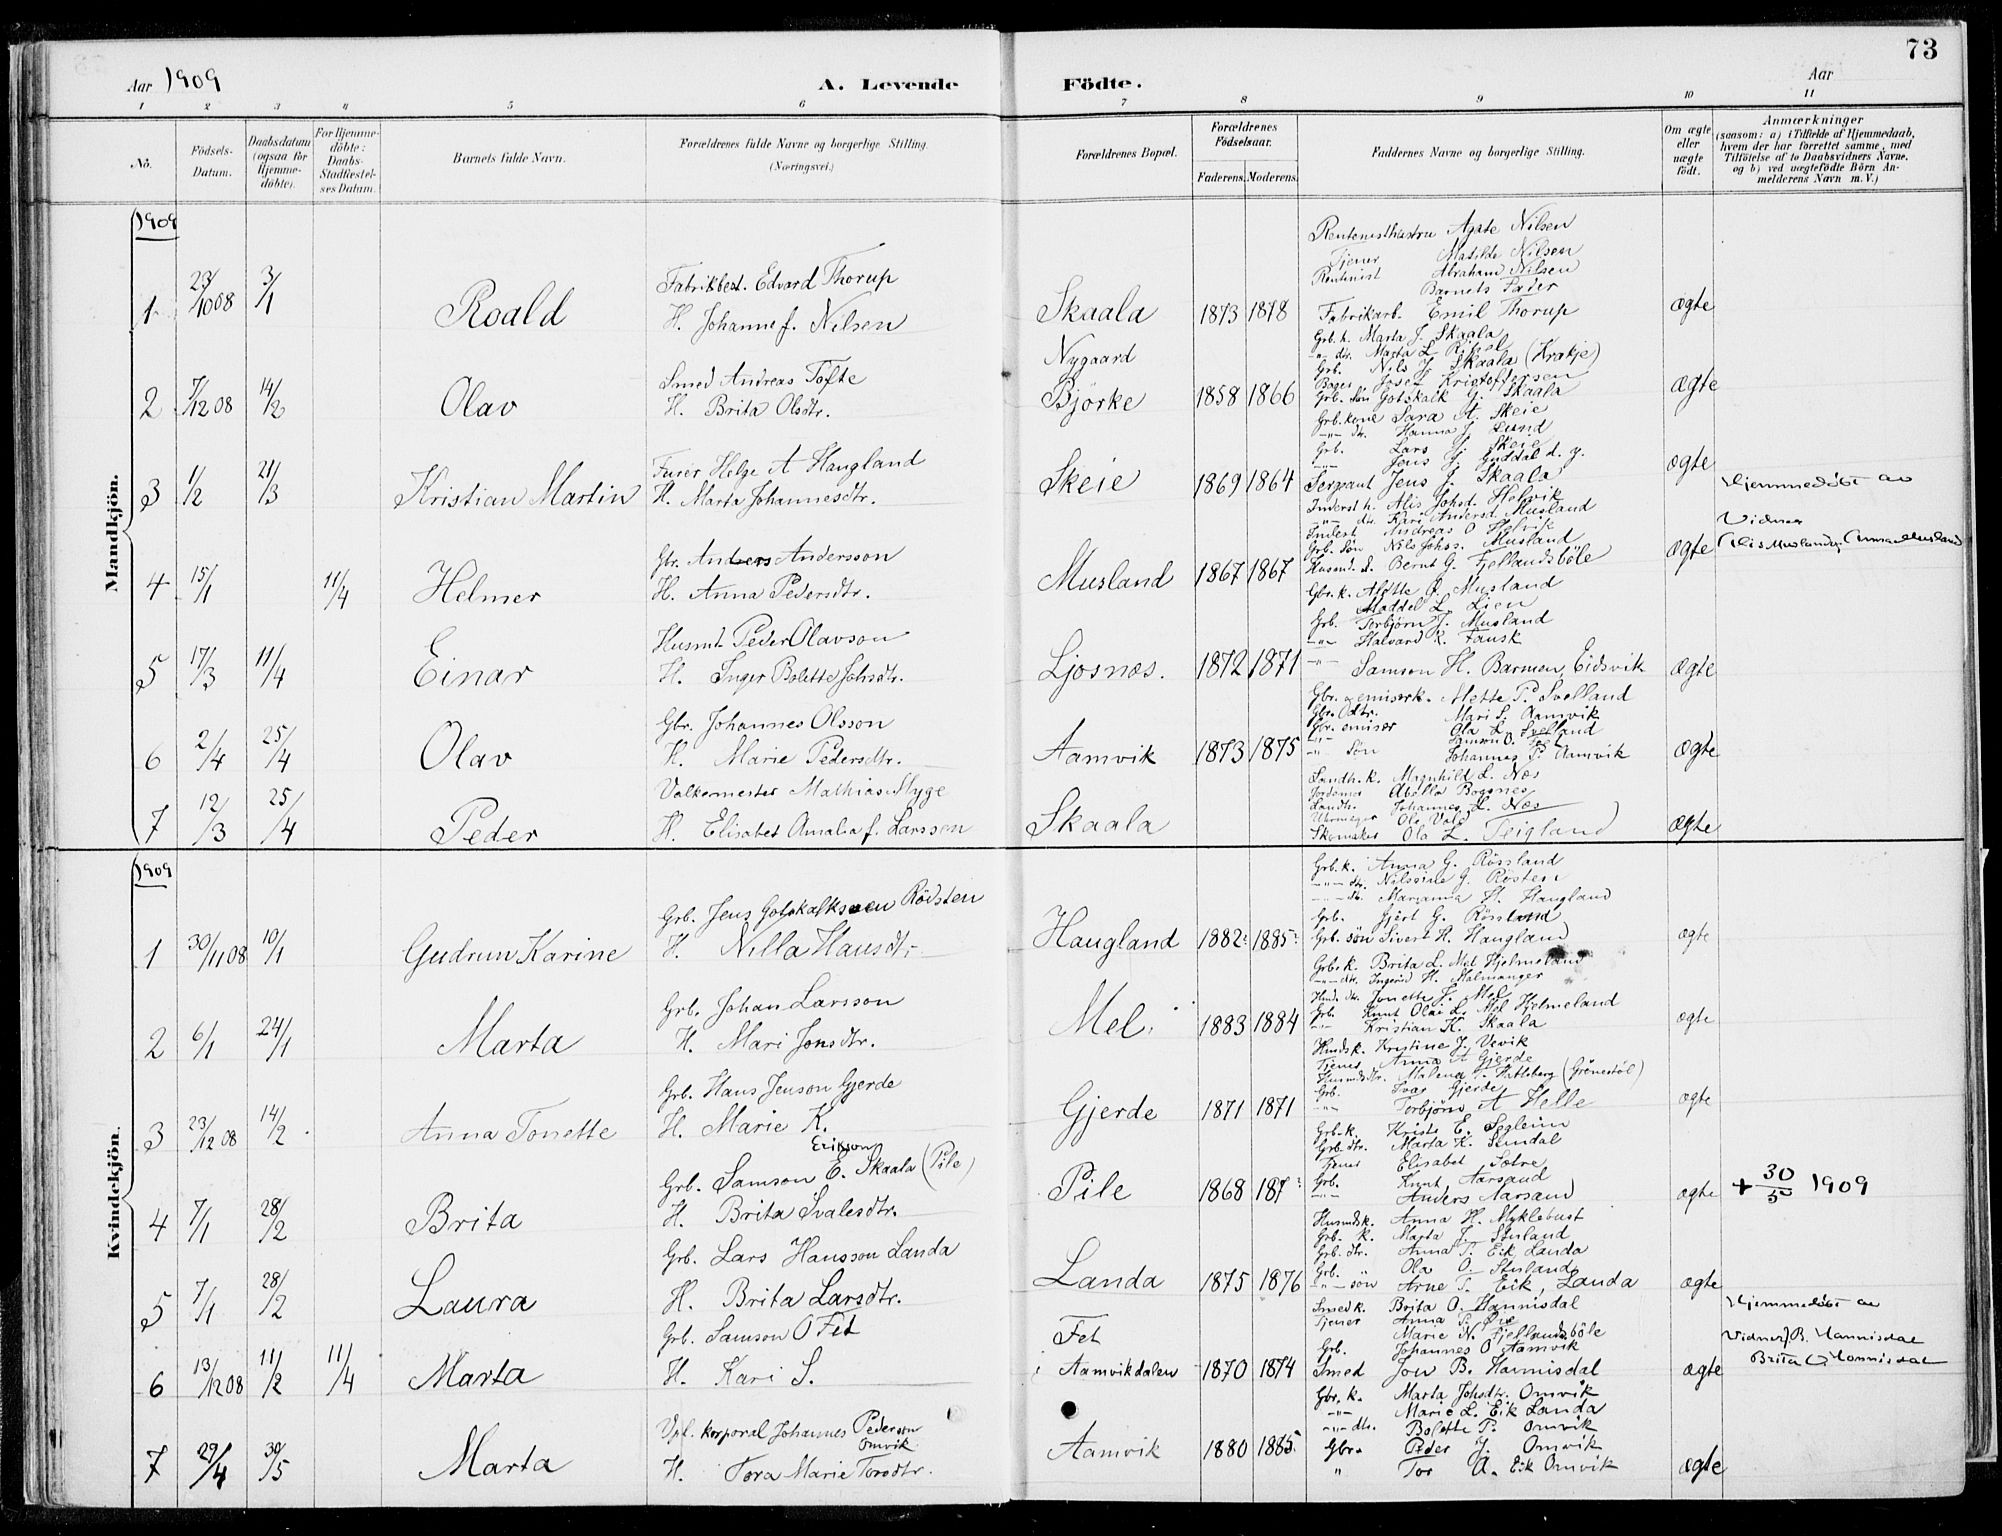 73
Aar 1909
A. Levende Födte.
Aar
1 2 3 4 5 6 7 8 9 10 11
No.
Födsels-Datum.
Daabsdatum (ogsaa for Hjemme-döbte).
For Hjemme-döbte: Daabs-Stadfæstel-ses Datum.
Barnets fulde Navn.
Forældrenes fulde Navne og borgerlige Stilling. (Næringsvei.)
Forældrenes Bopæl.
Forældrenes Födselsaar.
Faderens. Moderens.
Faddernes Navne og borgerlige Stilling.
Om ægte eller uægte født.
Anmærkninger
(saasom: a) i Tilfælde af Hjemmedaab, hvem der har forrettet samme, med Tilföielse af to Daabsvidners Navne, og b) ved uægtefödte Börn An-melderens Navn m. V.)
Mandkjön.
1909
1 23/10 08 3/1 Roald
Fabrikbest. Edvard Thorup
H. Johanne f. Nilsen
Skaala 1873 1878
Agate Nilsen
Tjener Matilde Nilsen
Rentenist Abraham Nilsen
Barnets Fader
Fabrikarb. Emil Thorup
ægte
2 7/12 08 14/2 Olav
Smed Andreas Tofte
H. Brita Olsdtr.
Nygaard
Bjørke 1858 1866
Grb. k. Marta J. Skaala
Grb. Nils J. Skaala (Krakje)
Josef Kristoffersen
Grb. søn Gotskalk G. Skaala
ægte
3 1/2 21/3 Kristian Martin
Furer Helge A Haugland
H. Marta Johannesdtr.
Skeie 1869 1864
Grb. kone Sara A. Skeie
Hanna J. Lund
Grb. Lars J. Skeie
Jens J. Guddal d. y.
Sergeant Jens J. Skaala
ægte
4 15/1 11/4 Helmer
Gbr. Anders Andersson
H. Anna Pedersdtr.
Musland 1867 1867
Inderst k. Alis Johsd. Helvik
Kari Andersd. Musland
Inderst Andreas O Helvik
Grb. Søn Nils Johs. Musland
Bernt G. Fjellandsbøle
ægte
Hjemmedøbt av
Vidner
5 17/3 11/4 Einar
Husmd. Peder Olavson
H. Inger Bolette Johsdtr.
Ljosnæs. 1872 1871
Musland
Maddel L. Lien
Grb. Torbjørn J. Musland
Halvard R. Fausk
Samson H. Barmen, Eidsvik
ægte
6 2/4 25/4 Olav
Gbr. Johannes Olsson
H. Marie Pedersdtr.
Aamvik 1873 1875
Mette P. Svelland
Mari S. Aamvik
Gbr. emisær Ola L. Svelland
Samson O. Fet
Søn Johannes P. Aamvik
ægte
7 12/3 25/4 Peder
Valkemester Mathias Myge
H. Elisabet Amalia f. Larssen
Skaala
Landh. k. Magnhild L. Næs
Abella Bogsnes
Landh. Johannes L. Næs
Ole Vold
Skomaker Ola L. Teigland
ægte
Kvindekjön.
1909
1 30/11 08 10/1 Gudrun Karine
Grb. Jens Gotskalksen Rödsten
H. Nilla Hansdtr.
Haugland 1882 1885
Grb. k. Anna G. Røssland
Nilssine G. Røsten
Marianna H. Haugland
Grb. Gjert G. Røssland
Grb. søn Sivert H. Haugland
ægte
2 6/1 24/1 Marta
Grb. Johan Larsson
H. Mari Jonsdtr.
Mel 1883 1884
Grb. k. Brita L. Mel Hjelmeland
Ingerid H. Malmanger
Jonette J. Mel
Grb. Knut Olai L. Mel Hjelmeland
Kristian K. Skaala
ægte
3 23/12 08 14/2 Anna Tonette
Grb. Hans Jenson Gjerde
H. Marie K.
Gjerde 1871 1871
Husmdsk. Kristine J. Vevik
Tjener Anna A Gjerde
Malena T. Hatleberg (Grönestöl)
Grb. Ivar Gjerde
Torbjørn A Helle
ægte
4 7/1 28/2 Brita
Erikson
Grb. Samson E. Skaala (Pile)
H. Brita Svalesdtr.
Pile 1868 187
Grb. k. Kristi E. Segleim
Grb. dtr. Marta K. Sundal
Tjener Elisabet Sætre
Grb. Knut Aarsand
Anders Aarsand
ægte + 30/5 1909
5 7/1 28/2 Laura
Grb. Lars Hansson Landa
H. Brita Larsdtr.
Landa 1875 1876
Husmdsk. Anna H. Myklebust
Grb. k. Marta J. Stuland
Grb. dtr. Anna T. Eik Landa
Grb. Ola O. Stuland
søn Arne T. Eik, Landa
ægte
6 13/12 08 11/2 11/4 Marta
Grb. Samson O Fet
H. Kari S.
Fet
i Aamvikdalen 1870 1874
Smedk. Brita O. Hannisdal
Tjener Anna T. Øie
Marie N. Fjellandsbøle
Grb. Johannes O Aamvik
Smed Jon B. Hannisdal
ægte
Hjemmedøbt av
Vidner J. B. Hannisdal
Brita O Hannisdal
7 29/4 30/5 Marta
Vpl. korporal Johannes Pederson
Omvik
H. Tora Marie Torsdtr.
Aamvik 1880 1885
Gbr. k. Marta Johsdtr. Omvik
Marie L. Eik Landa
Bolette P. Omvik
Gbr. Peder J. Omvik
" Tor A. Eik Omvik
ægte